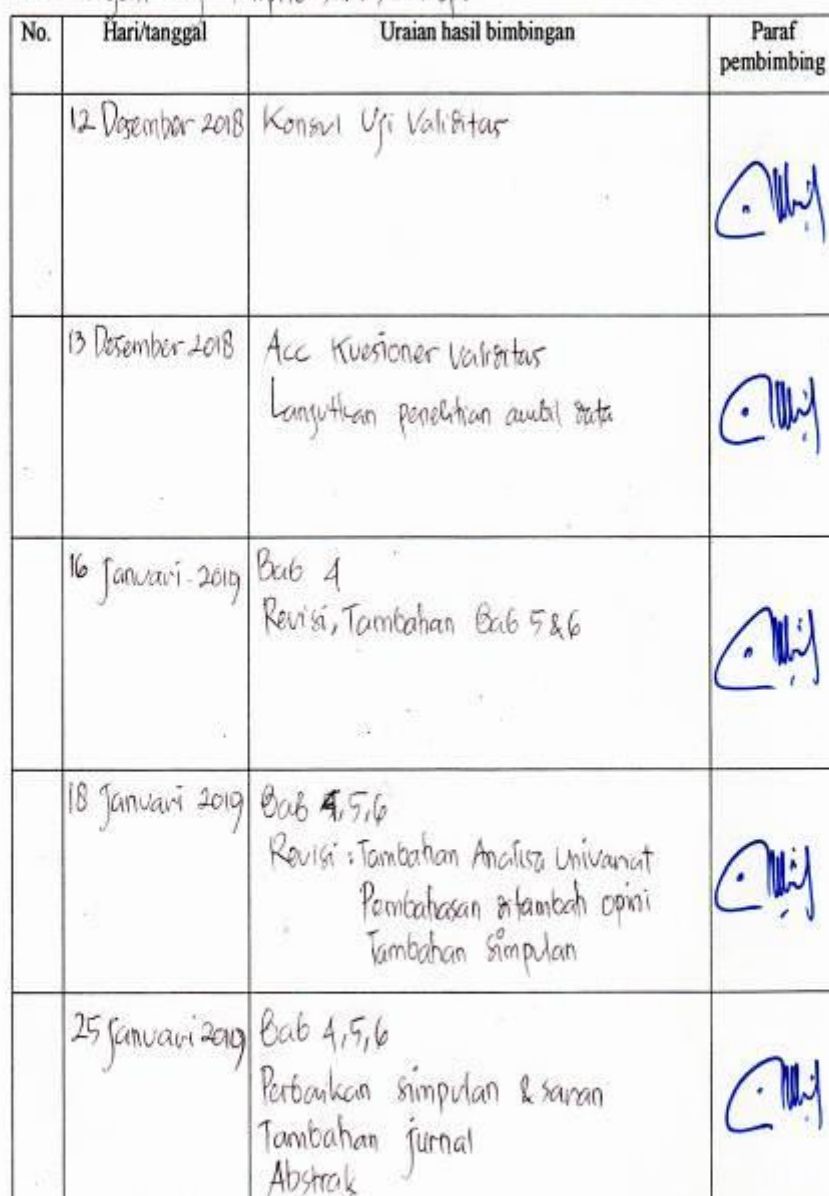 No. Hari/tanggal Uraian hasil bimbingan Paraf pembimbing
12 Desember 2018 Konsul Uji Validitas
13 Desember 2018 Acc Kuesioner Validitas
Lanjutkan penelitian ambil data
16 Januari - 2019 Bab 4
Revisi, Tambahan Bab 5 & 6
18 Januari 2019 Bab 4,5,6
Revisi : Tambahan Analisa Univariat
Pembahasan ditambah opini
Tambahan Simpulan
25 Januari 2019 Bab 4,5,6
Perbaikan simpulan & saran
Tambahan jurnal
Abstrak